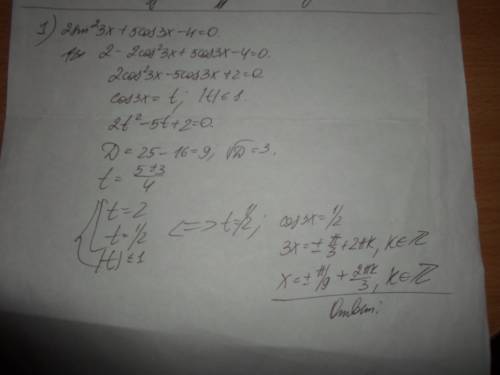 1) 2sin²3x + 5cos3x - 4 = 0.
2 - 2cos²3x + 5cos3x - 4 = 0.
2cos²3x - 5cos3x + 2 = 0.
cos3x = t; |t| ≤ 1.
2t² - 5t + 2 = 0.
D = 25 - 16 = 9, √D = 3.
t = (5 ± 3)/4
t = 2
t = 1/2
|t| ≤ 1
<=> t = 1/2;
cos3x = 1/2
3x = ± π/3 + 2πk, k∈ℤ
x = ± π/9 + 2πk/3, k∈ℤ
Ответ: